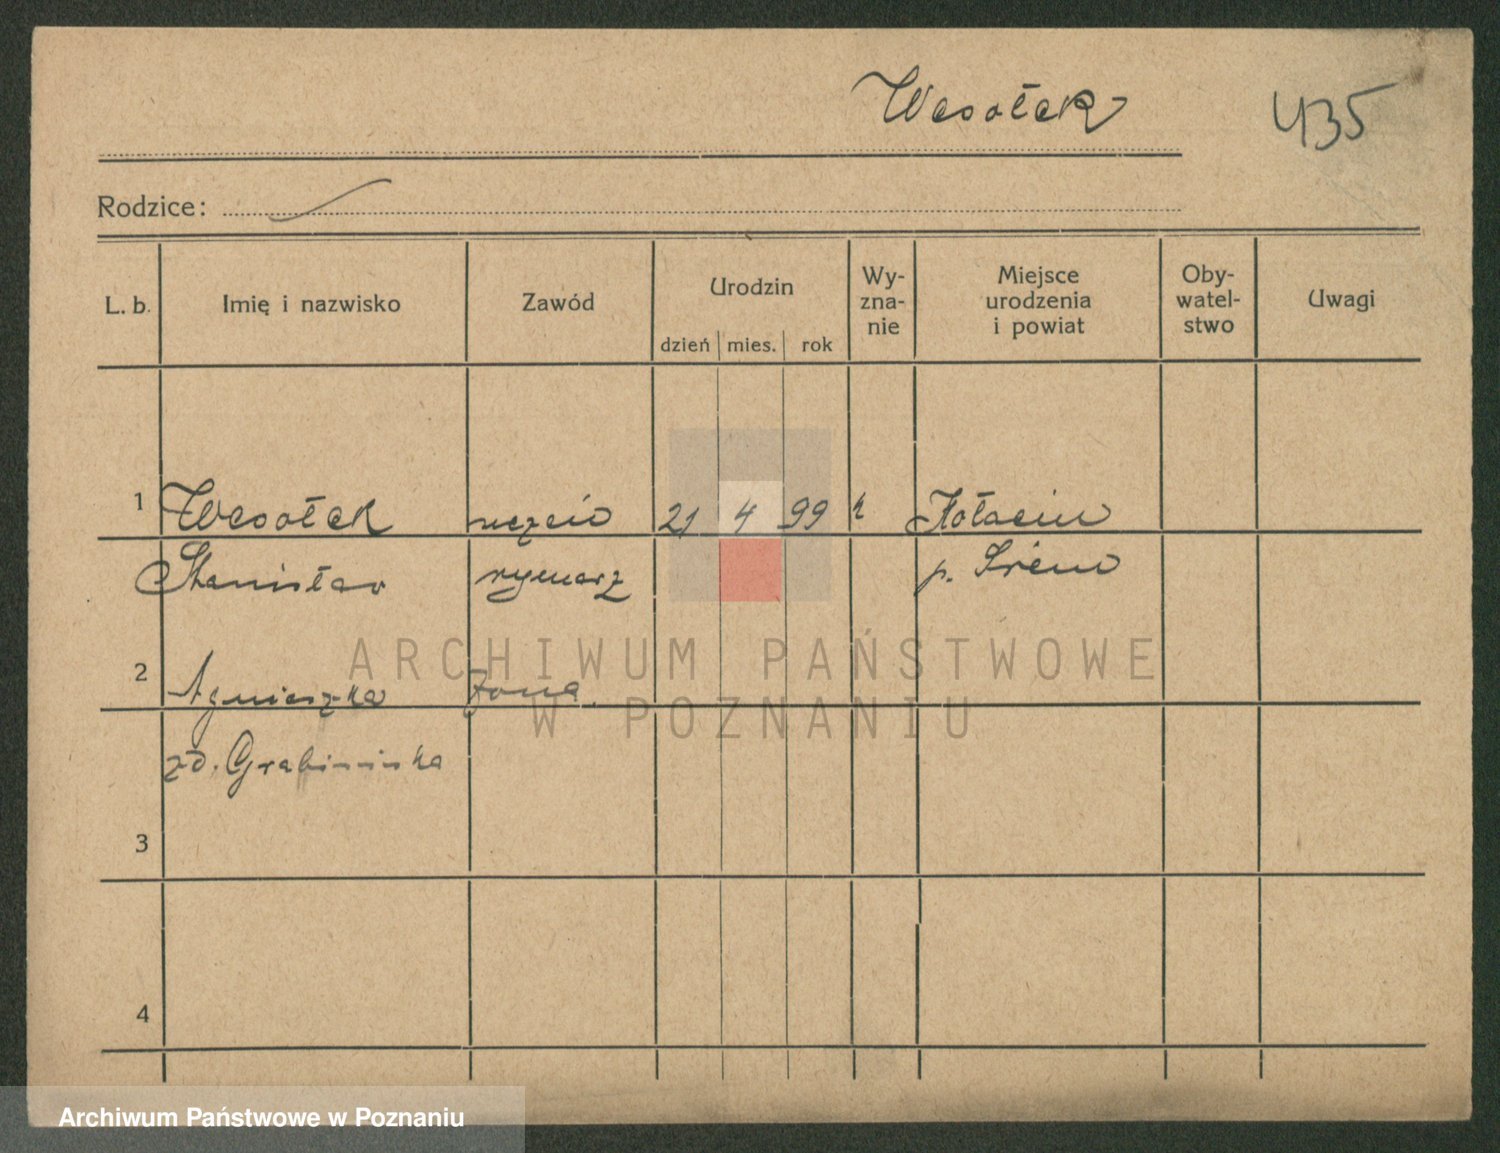 Wesołek
435
Rodzice:
L. b.
Imię i nazwisko
Zawód
Urodzin
dzień mies. rok
Wy-
zna-
nie
Miejsce
urodzenia
i powiat
Oby-
watel-
stwo
Uwagi
1 Wesołek uczeń 21 4 99 k
Stanisław rymarz p. Śrem
2 Agnieszka żona
zd. Grabińska
3
4
ARCHIWUM PAŃSTWOWE
W POZNANIU
Archiwum Państwowe w Poznaniu